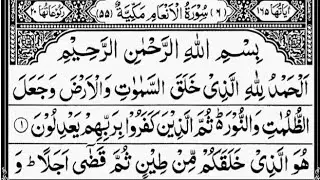 اٰيَاتُهَا ١٦٥ (٦) سُوْرَةُ الْاَنْعَامِ مَكِّيَّةٌ (٥٥) رُكُوْعَاتُهَا ٢٠
بِسْمِ اللّٰهِ الرَّحْمٰنِ الرَّحِيْمِ
اَلْحَمْدُ لِلّٰهِ الَّذِيْ خَلَقَ السَّمٰوٰتِ وَالْاَرْضَ وَجَعَلَ
الظُّلُمٰتِ وَالنُّوْرَ ثُمَّ الَّذِيْنَ كَفَرُوْا بِرَبِّهِمْ يَعْدِلُوْنَ ١
هُوَ الَّذِيْ خَلَقَكُمْ مِّنْ طِيْنٍ ثُمَّ قَضٰٓى اَجَلًا وَ